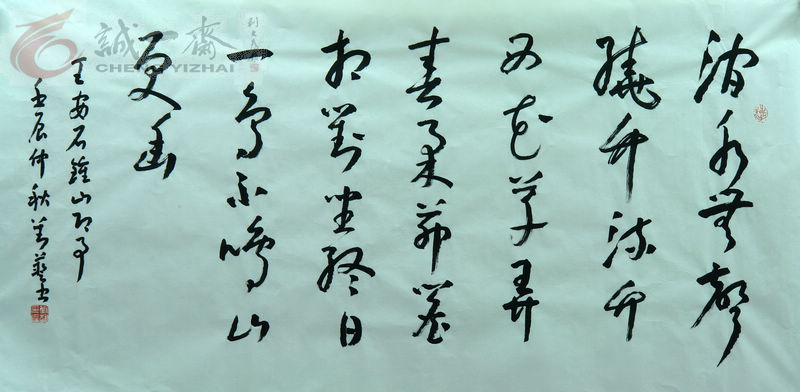 澗水無聲
繞竹流竹
西花草弄
春柔茅簷
相對坐終日
一鳥不鳴山
更幽
王安石鐘山即事
壬辰仲秋
誠一齋
CHENGYIZHAI